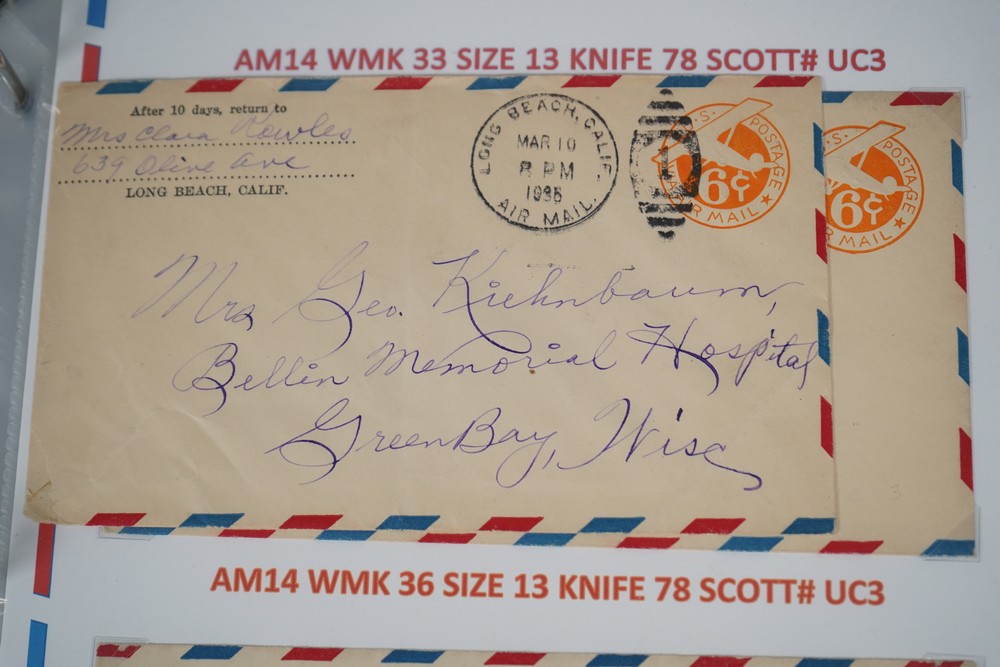 AM14 WMK 33 SIZE 13 KNIFE 78 SCOTT# UC3
After 10 days, return to
Mrs Clara Knowles
639 Olive Ave
LONG BEACH, CALIF.
LONG BEACH, CALIF.
MAR 10
8 PM
1936
AIR MAIL.
1
S. POSTAGE
6¢
AIR MAIL
S. POSTAGE
6¢
R MAIL
Mrs Geo. Kiehnbaum,
Bellin Memorial Hospital
Green Bay, Wisc
3
AM14 WMK 36 SIZE 13 KNIFE 78 SCOTT# UC3